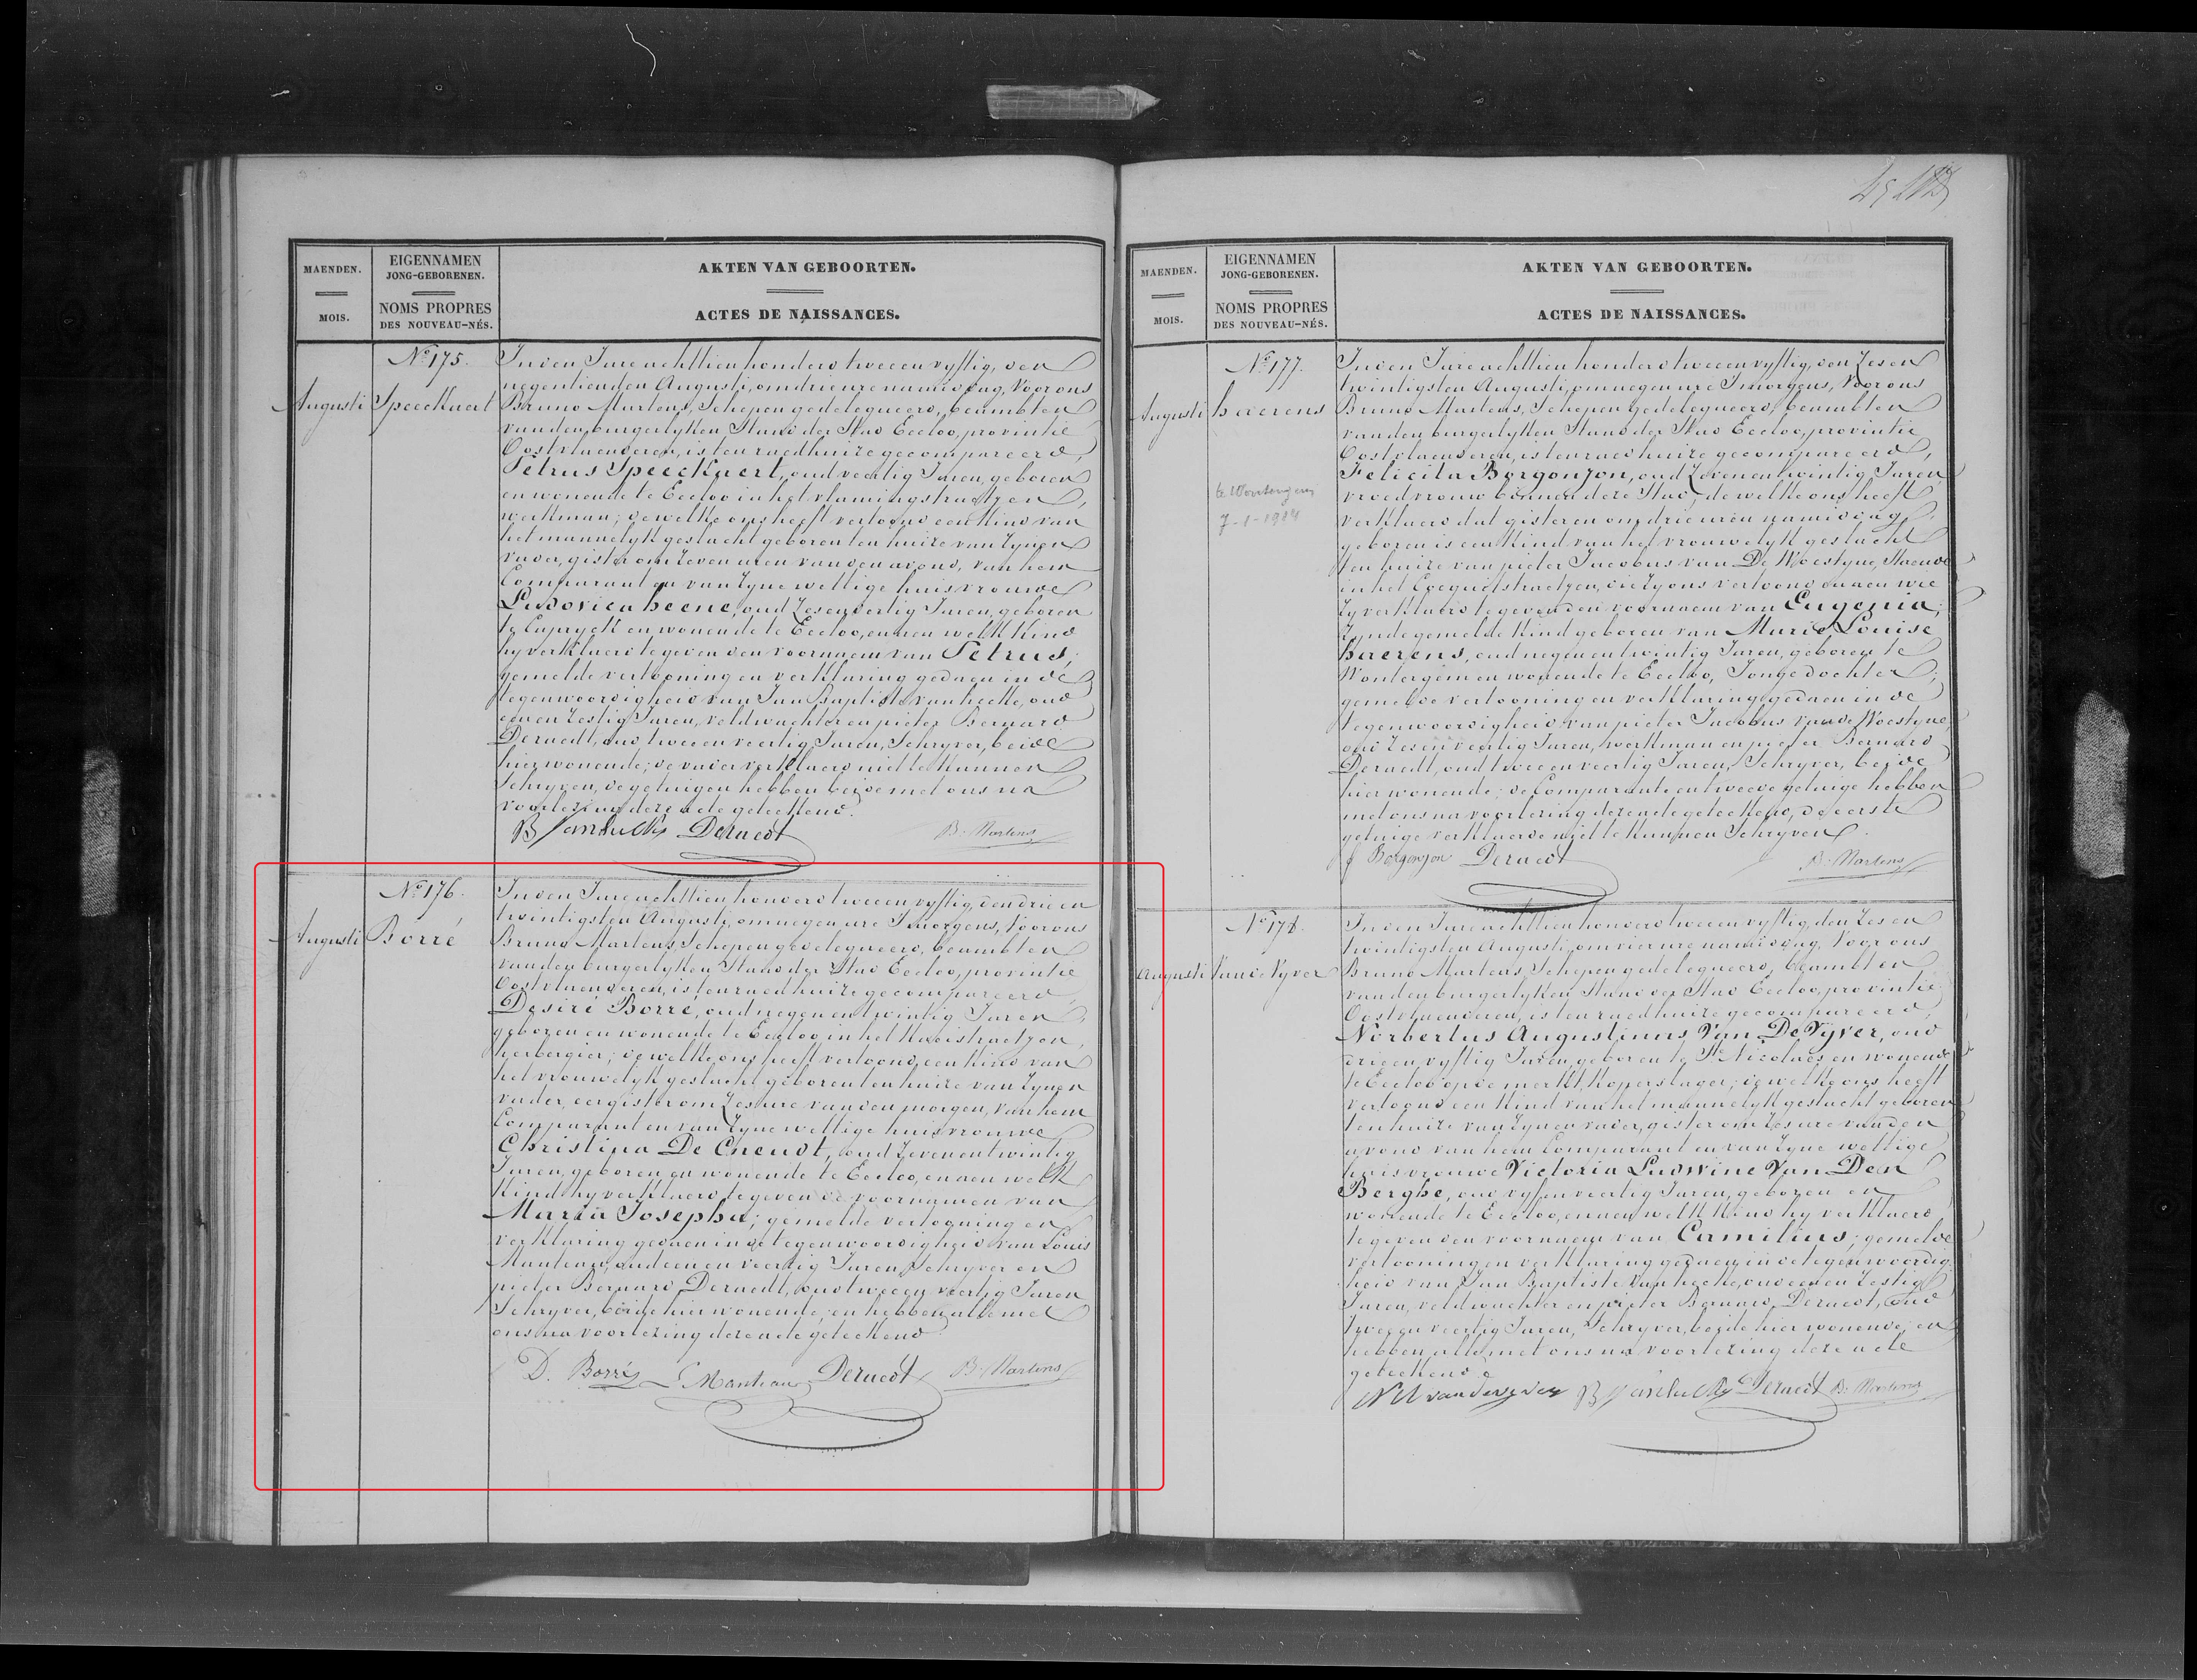 25 118
MAENDEN.
MOIS.
EIGENNAMEN
JONG-GEBORENEN.
NOMS PROPRES
DES NOUVEAU-NÉS.
AKTEN VAN GEBOORTEN.
ACTES DE NAISSANCES.
No 175.
Augusti
Speeckaert
In den Jare achttien honderd tweeen vyftig, den
negentienden Augusti, om drie ure namiddag, Voor ons
Bruno Martens, Schepen gedelegueerd, beambten
van den burgerlyken Stand der Stad Eecloo, provintie
Oostvlaenderen, is ten raedhuize gecompareerd,
Petrus Speeckaert, oud veertig Jaren, geboren
en wonende te Eecloo in het vlamingstraetjen,
werkman; dewelke ons heeft vertoond een Kind van
het mannelyk geslacht geboren ten huize van Zynen
vader, gister om Zeven uren van den avond, van hem
Comparant en van Zyne wettige huisvrouwe
Ludovica heene, oud Zesenveertig Jaren, geboren
te Capryck en wonende te Eecloo, en aen welk Kind
hy verklaerd te geven den voornaem van Petrus;
gemelde vertooning en verklaring gedaen in de
tegenwoordigheid van Jan Baptiste vanhecke, oud
een en Zestig Jaren, veldwachter en pieter Bernard
Deraedt, oud tweeen veertig Jaren, Schryver, beide
hier wonende; de vader verklaerd niet te Kunnen
Schryven, de getuigen hebben beide met ons na
voorlezing deze acte geteekend.
B Vanhecke Deraedt B. Martens
No 176.
Augusti
Borré
In den Jare achttien honderd tweeen vyftig, den drie en
twintigsten Augusti, om negen ure Smorgens, Voor ons
Bruno Martens, Schepen gedelegueerd, beambten
van den burgerlyken Stand der Stad Eecloo, provintie
Oostvlaenderen, is ten raedhuize gecompareerd,
Desiré Borré, oud negen en twintig Jaren,
geboren en wonende te Eecloo in het Kaeistraetjen,
herbergier; dewelke ons heeft vertoond, een Kind van
het vrouwelyk geslacht geboren ten huize van Zynen
vader, eergister om Zes ure van den morgen, van hem
Comparant en van Zyne wettige huisvrouwe
Christina De Cneudt, oud Zeven en twintig
Jaren, geboren en wonende te Eecloo, en aen welk
Kind hy verklaerd te geven de voornamen van
Maria Josepha; gemelde vertooning en
verklaring gedaen in de tegenwoordigheid van Louis
Manteau, oud een en veertig Jaren, Schryver en
pieter Bernard Deraedt, oud tweeen veertig Jaren
Schryver, beide hier wonende, en hebben alle met
ons na voorlezing deze acte geteekend.
D. Borré L Manteau Deraedt B. Martens
MAENDEN.
MOIS.
EIGENNAMEN
JONG-GEBORENEN.
NOMS PROPRES
DES NOUVEAU-NÉS.
AKTEN VAN GEBOORTEN.
ACTES DE NAISSANCES.
No 177.
Augusti
haerens
te Wontergem
7-1-1924
In den Jare achttien honderd tweeen vyftig, den Zes en
twintigsten Augusti, om negen ure Smorgens, Voor ons
Bruno Martens, Schepen gedelegueerd, beambten
van den burgerlyken Stand der Stad Eecloo, provintie
Oostvlaenderen, is ten raedhuize gecompareerd,
Felicita Borgonjon, oud Zeven en twintig Jaren,
vroedvrouw binnen deze Stad, dewelke ons heeft
verklaerd dat gisteren om drie uren namiddag
geboren is een Kind van het vrouwelyk geslacht
ten huize van pieter Jacobus van De Woestyne, Staende
in het Cocquitstraetjen, die Zy ons vertoond en aen wie
Zy verklaerd te geven den voornaem van Eugenia;
Zynde gemelde Kind geboren van Marie Louise
haerens, oud negen en twintig Jaren, geboren te
Wontergem en wonende te Eecloo, Jonge dochter;
gemelde vertooning en verklaring gedaen in de
tegenwoordigheid van pieter Jacobus van de Woestyne,
oud Zes en veertig Jaren, werkman en pieter Bernard
Deraedt, oud tweeen veertig Jaren, Schryver, beide
hier wonende; de Comparante en tweede getuige hebben
met ons na voorlezing deze acte geteekend, de eerste
getuige verklaerde niet te Kunnen Schryven.
f Borgonjon Deraedt B. Martens
No 178.
Augusti
Van de Vyver
In den Jare achttien honderd tweeen vyftig, den Zes en
twintigsten Augusti, om vier ure namiddag, Voor ons
Bruno Martens, Schepen gedelegueerd, beambten
van den burgerlyken Stand der Stad Eecloo, provintie
Oostvlaenderen, is ten raedhuize gecompareerd,
Norbertus Augustinus Van De Vyver, oud
drie en vyftig Jaren, geboren te St Nicolaes en wonende
te Eecloo op de merkt, Koperslager; dewelke ons heeft
vertoond een Kind van het mannelyk geslacht geboren
ten huize van Zynen vader, gister om Zes ure van den
avond van hem Comparant en van Zyne wettige
huisvrouwe Victoria Ludwine Van Den
Berghe, oud vyf en veertig Jaren, geboren en
wonende te Eecloo, en aen welk Kind hy verklaerd
te geven den voornaem van Camilius; gemelde
vertooning en verklaring gedaen in de tegenwoordig
heid van Jan Baptiste Vanhecke, oud een en Zestig
Jaren, veldwachter en pieter Bernard Deraedt, oud
tweeen veertig Jaren, Schryver, beide hier wonende; en
hebben alle met ons na voorlezing deze acte
geteekend.
N A vandevyver B Vanhecke Deraedt B. Martens